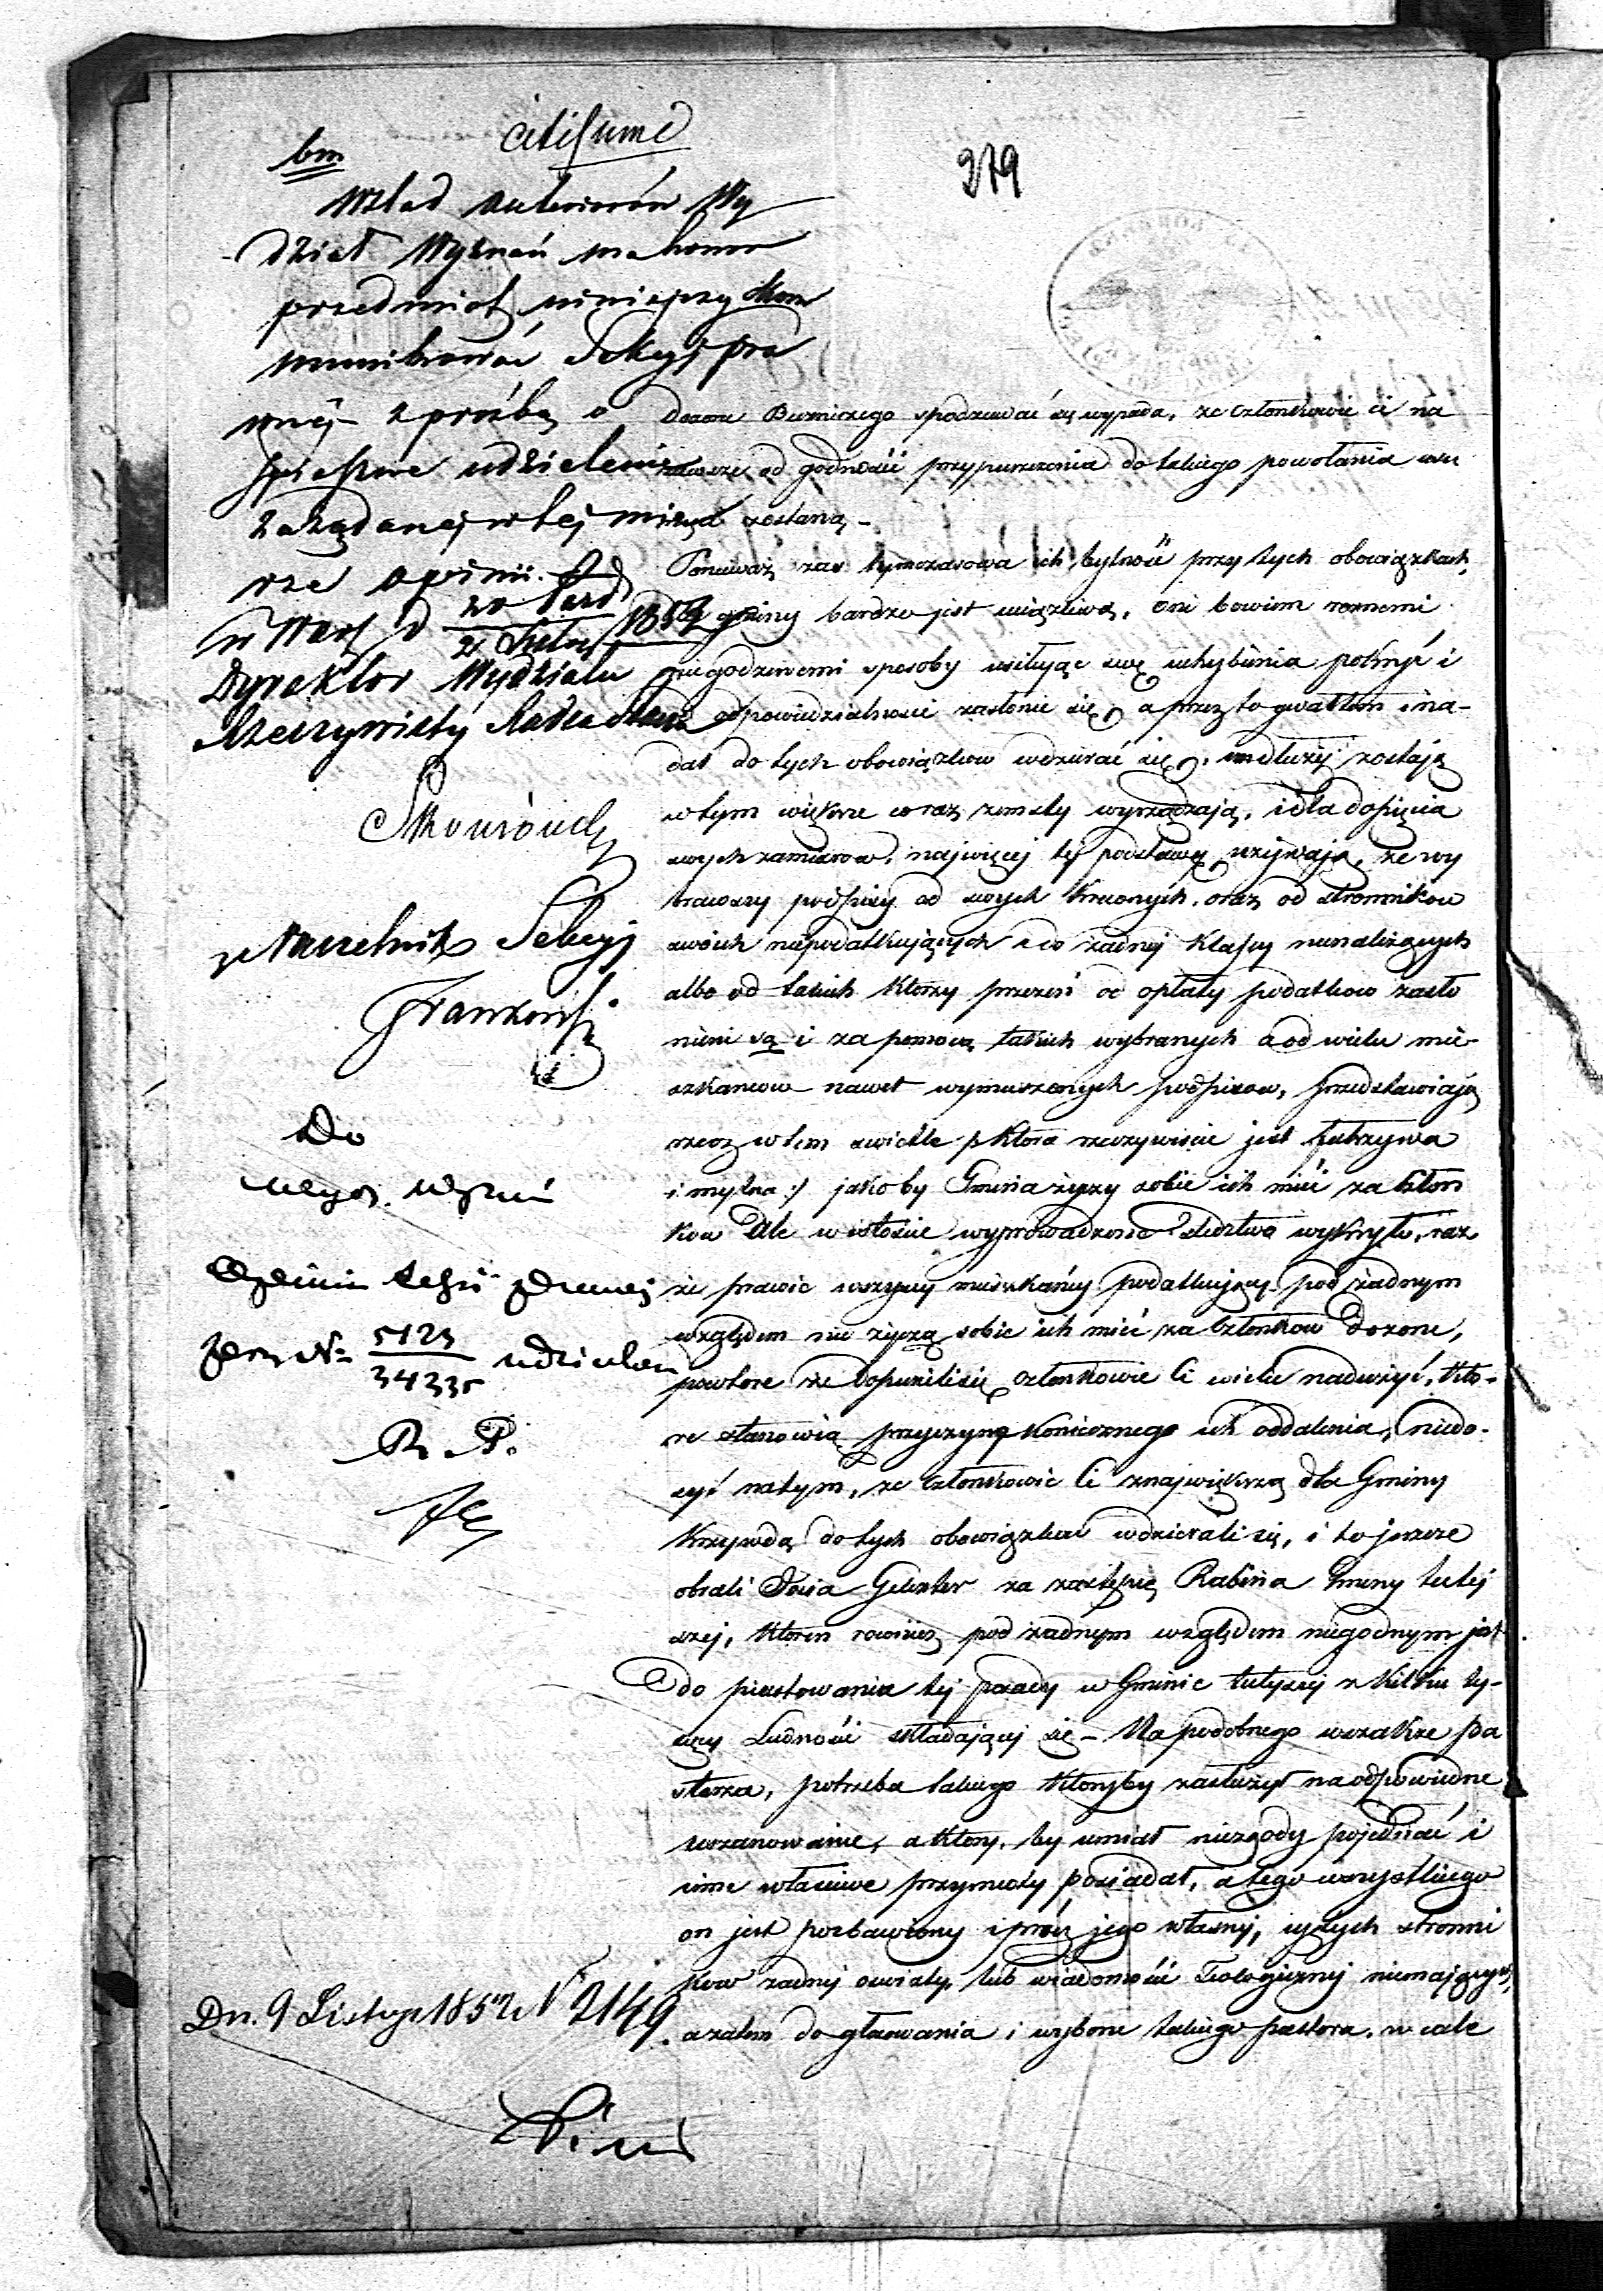 citissime
bm
379
Wślad anteriorów Wy
dział Wyznań ma honor
przedmiot niniejszy kom
munikować Sekcyi pra
wnéj z prośbą o
spieszne udzielenie
zażądanej w tej mie
rze opinii.
w Warsz d 20 Paźd 1852
Dyrektor Wydziału
Rzeczywisty Radca Stanu
Naczelnik Sekcyi
Frankowski
Do
Wyzn
Opinii Sekcyi Prawnej
N 5123
34335 udzielon
R. P.
Dn. 9 Listop 1852 N 2149.
Dozoru Bożniczego spodziewać się wypada, że członkowie ci na
zawsze od godności przypuszczenia do takiego powołania
zostaną –
Ponieważ zaś tymczasowa ich bytność przy tych obowiązkach,
dla gminy bardzo jest uciążliwa, oni bowiem roznemi
niegodziwemi sposoby usiłując swe uchybienia pokryć i
odpowiedzialności zasłonić się, a przez to gwałtem i na-
dal do tych obowiązkow wdzierać się, im dłużej zostają
w tym większe coraz zamęty wyrządzają, i dla dopięcia
swych zamiarow, najwięcej tej podstawy używają, że wy
brawszy podpisy od swych krewnych, oraz od stronnikow
swoich niepodatkujących i do żadnej klassy nienależących
albo od takich którzy przezeń od opłaty podatkow zasło
nieni są i za pomocą takich wybranych a od wielu mie-
szkancow nawet wymuszonych podpisow, przedstawiają
rzecz w tem świetle /: która rzeczywiście jest fałszywa
i mylna :/ jakoby Gmina życzy sobie ich mieć za człon
kow Ale w istocie wyprowadzone śledztwo wykryło, raz
że prawie wszyscy mieszkańcy podatkujący pod żadnym
względem nie życzą sobie ich mieć za członkow Dozoru,
powtore że dopuścili się członkowie ci wielu nadużyć, któ-
re stanowią przyczynę koniecznego ich oddalenia, niedo-
syć natym, że członkowie ci z największą dla Gminy
krzywdą do tych obowiązkow wdzierali się, i to jeszcze
obrali Gelezter za zastępcę Rabina Gminy tutej
szej, ktoren rownież pod żadnym względem niegodnym jest
do piastowania tej posady w Gminie tutejszej z kilku ty-
sięcy Ludności składającej się – Na podobnego wszakże pa
sterza, potrzeba takiego któryby zasłużył na odpowiedne
uszanowanie, a który, by umiał niezgody pojednać i
inne właściwe przymioty posiadał, a tego wszystkiego
on jest pozbawiony i prócz jego własnej, i tych stronni
kow żadnej oswiaty, lub wiadomości Teologicznej niemających,
a zatem do głosowania i wyboru takiego pastora, w cale